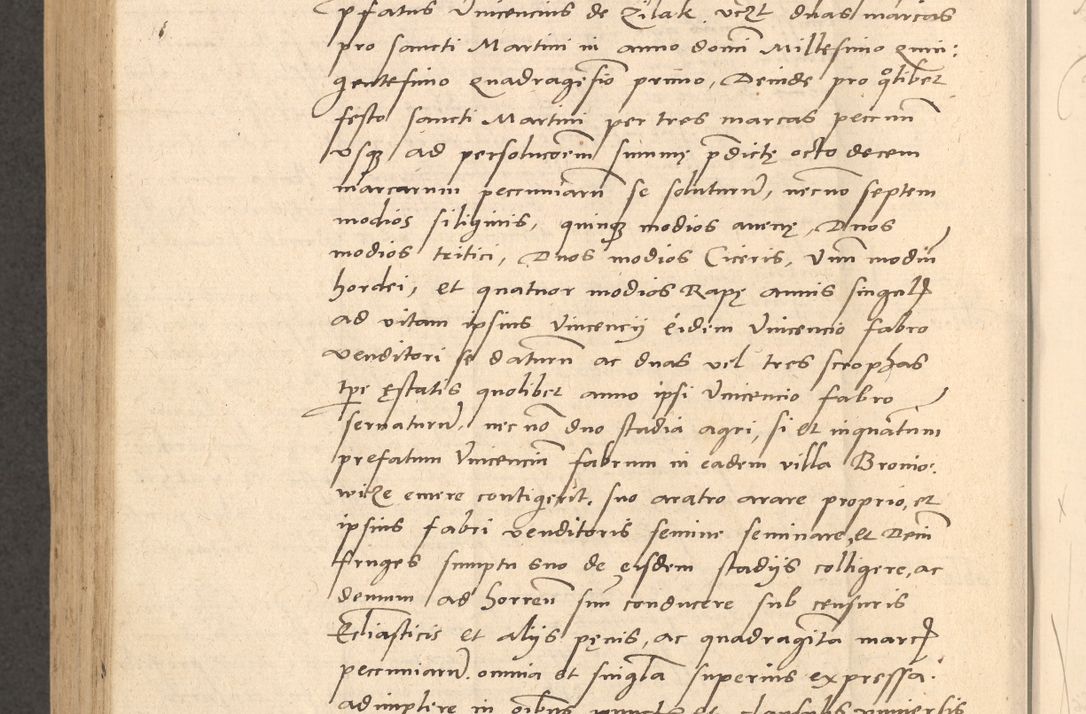 pfatus Vincencius de Zilak, vczt duas marcas
pro sancti Martini in anno domi Millesimo quin:
gentesimo quadragesio primo, Deinde pro qolibet
festo sancti Martini per tres marcas pecun
usq ad persolucoem summę pdictę octo decem
marcarum pecuniaru se soluturu, necno septem
modios siliginis, quinq modios auenę, Duos
modios tritici, Duos modios Ciceris, Vnu modiu
hordei, et quatuor modios Rapę annis singul
ad vitam ipsius Vincencij eidem Vincencio fabro
venditori se daturu ac duas vel tres scrophas
tpe ęstatis quolibet anno ipsi Vincencio fabro
seruaturu, nec no duo stadia agri, si et inquantum
prefatum Vincenciu fabrum in eadem villa Bronio:
wicze emere contigerit, suo aratro arare proprio, et
ipsius fabri venditoris semine seminare, et Dein
fruges sumptu suo de eisdem stadijs colligere, ac
demum ad horreu suu conducere sub censuris
Ecliasticis et alijs pęnis, ac quadraginta marc
pecuniaru. omnia et singla superius expressa.
adimplere in oibus punctis et clausulis vniuersis